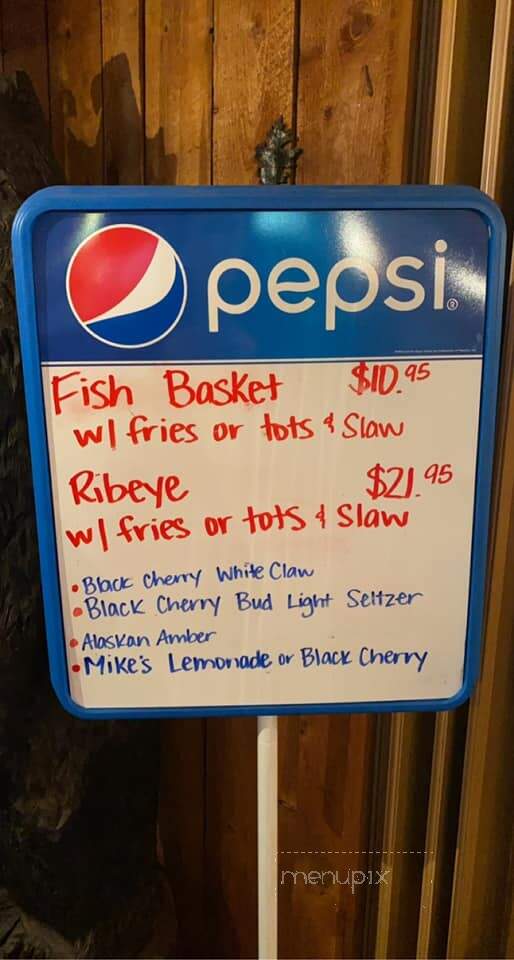 pepsi®
Fish Basket $10.95
w/ fries or tots & Slaw
Ribeye $21.95
w/ fries or tots & Slaw
• Black Cherry White Claw
• Black Cherry Bud Light Seltzer
• Alaskan Amber
• Mike's Lemonade or Black Cherry
menupix